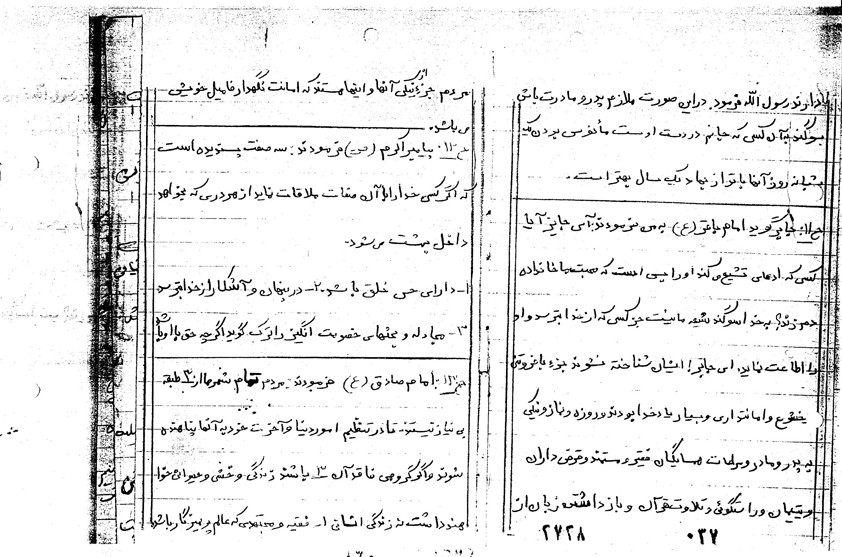 دارند رسول الله فرمود: در این صورت ملازم پدر و مادرت باش
سوگند به آن کسی که جانم در دست اوست مأنوس بودن یک
شبانه روز آنها با تو از جهاد یک سال بهتر است.
ح ۱۱: جابر گوید امام باقر (ع) به من فرمودند: ای جابر آیا
کسی که ادعای تشیع می‌کند او را بس است که محبت ما خانواده
دم زند؟ به خدا سوگند شیعه ما نیست جز کسی که از خدا بترسد و او
را اطاعت نماید. ای جابر! ایشان شناخته نشوند جز با فروتنی
خشوع و امانتداری و بسیار یاد خدا بودن و روزه و نماز و نیکی
به پدر و مادر و مراعات همسایگان فقیر و مستمند و قرض داران
و یتیمان و راستگوئی و تلاوت قرآن و باز داشتن زبان از
۲۷۲۸ ۰۳۷
مردم جز از نیکی آنها و اینها هستند که امانت نگهدار فامیل خویش
می باشد.
ح ۱۲: پیامبر اکرم (ص) فرمودند: سه صفت پسندیده است
که اگر کسی خدا را با آن صفات ملاقات نماید از هر دری که بخواهد
داخل بهشت می شود.
۱- دارای حسن خلق باشد ۲- در پنهان و آشکارا از خدا بترسد
۳- مجادله و بحثهای خصومت انگیز را ترک گوید اگر چه حق با او باشد
ح ۱۳: امام صادق (ع) فرمودند: مردم تمام شهرها از ۳ طبقه
بی نیاز نیستند تا در تنظیم امور دنیا و آخرت خود به آنها پناهنده
شوند و اگر گروهی فاقد آن ۳ باشند زندگی وحشی و حیوانی خوا
هند داشت نه زندگی انسانی ۱- فقیه و مجتهدی که عالم و پرهیزگار باشد